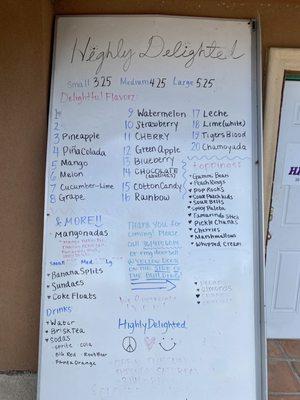 Highly Delighted
Small 3.25 Medium 4.25 Large 5.25
Delightful Flavorz
1
2
3 Pineapple
4 Piña Colada
5 Mango
6 Melon
7 Cucumber-Lime
8 Grape
9 Watermelon
10 Strawberry
11 CHERRY
12 Green Apple
13 Blueberry
14 CHOCOLATE
15 Cotton Candy
16 Rainbow
17 Leche
18 Lime (white)
19 Tigers Blood
20 Chamoyada
Toppings
Gummi Bears
Peach Rings
Pop Rocks
Sour Patch Kids
Sour Belts
Spicy Pelato
Tamarindo Stick
Pickle Chunks
Cherries
Marshmallows
Whipped Cream
& MORE!!
Mangonadas
Small Med Lg
Banana Splits
Sundaes
Coke Floats
Drinks
Water
Brisk Tea
Sodas
Sprite Cola
Big Red Root Beer
Fanta Orange
THANK YOU FOR
coming! Please
ON THE SIDE OF
THE BUILDING
Highly Delighted